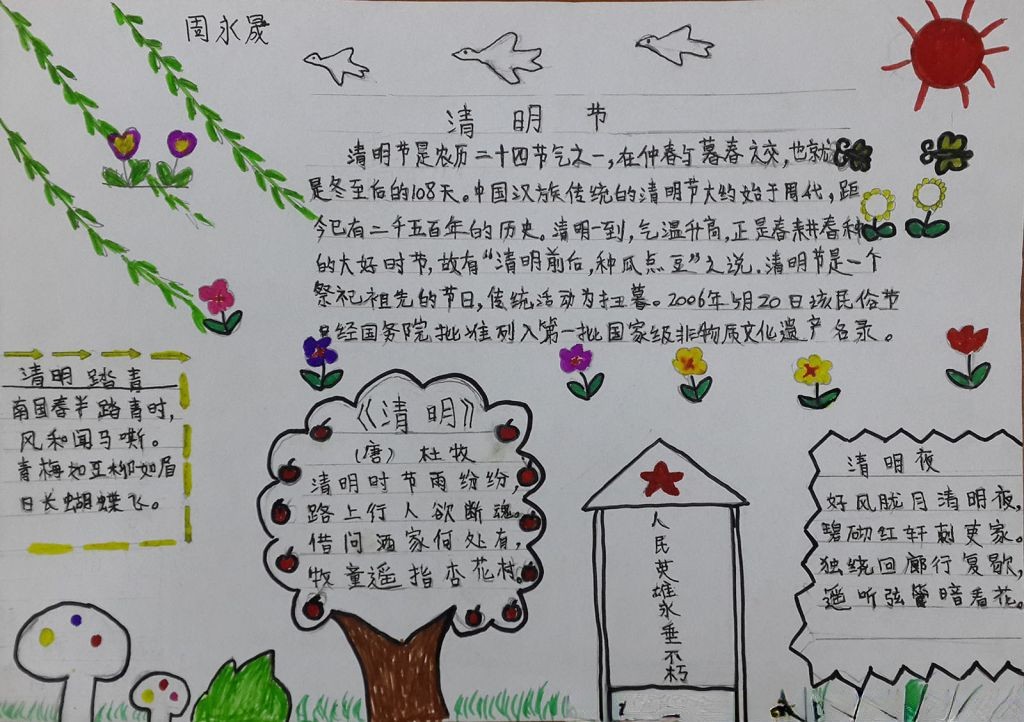 周永晟
清明节
清明节是农历二十四节气之一,在仲春与暮春之交,也就
是冬至后的108天。中国汉族传统的清明节大约始于周代,距
今已有二千五百年的历史。清明一到,气温升高,正是春耕春种
的大好时节,故有“清明前后,种瓜点豆”之说.清明节是一个
祭祀祖先的节日,传统活动为扫墓。2006年5月20日该民俗节
经国务院批准列入第一批国家级非物质文化遗产名录。
清明踏青
南国春半踏青时,
风和闻马嘶。
青梅如豆柳如眉
日长蝴蝶飞。
《清明》
(唐)杜牧
清明时节雨纷纷,
路上行人欲断魂。
借问酒家何处有,
牧童遥指杏花村。
人民英雄永垂不朽
清明夜
好风胧月清明夜,
碧砌红轩刺吏家。
独绕回廊行复歇,
遥听弦管暗看花。